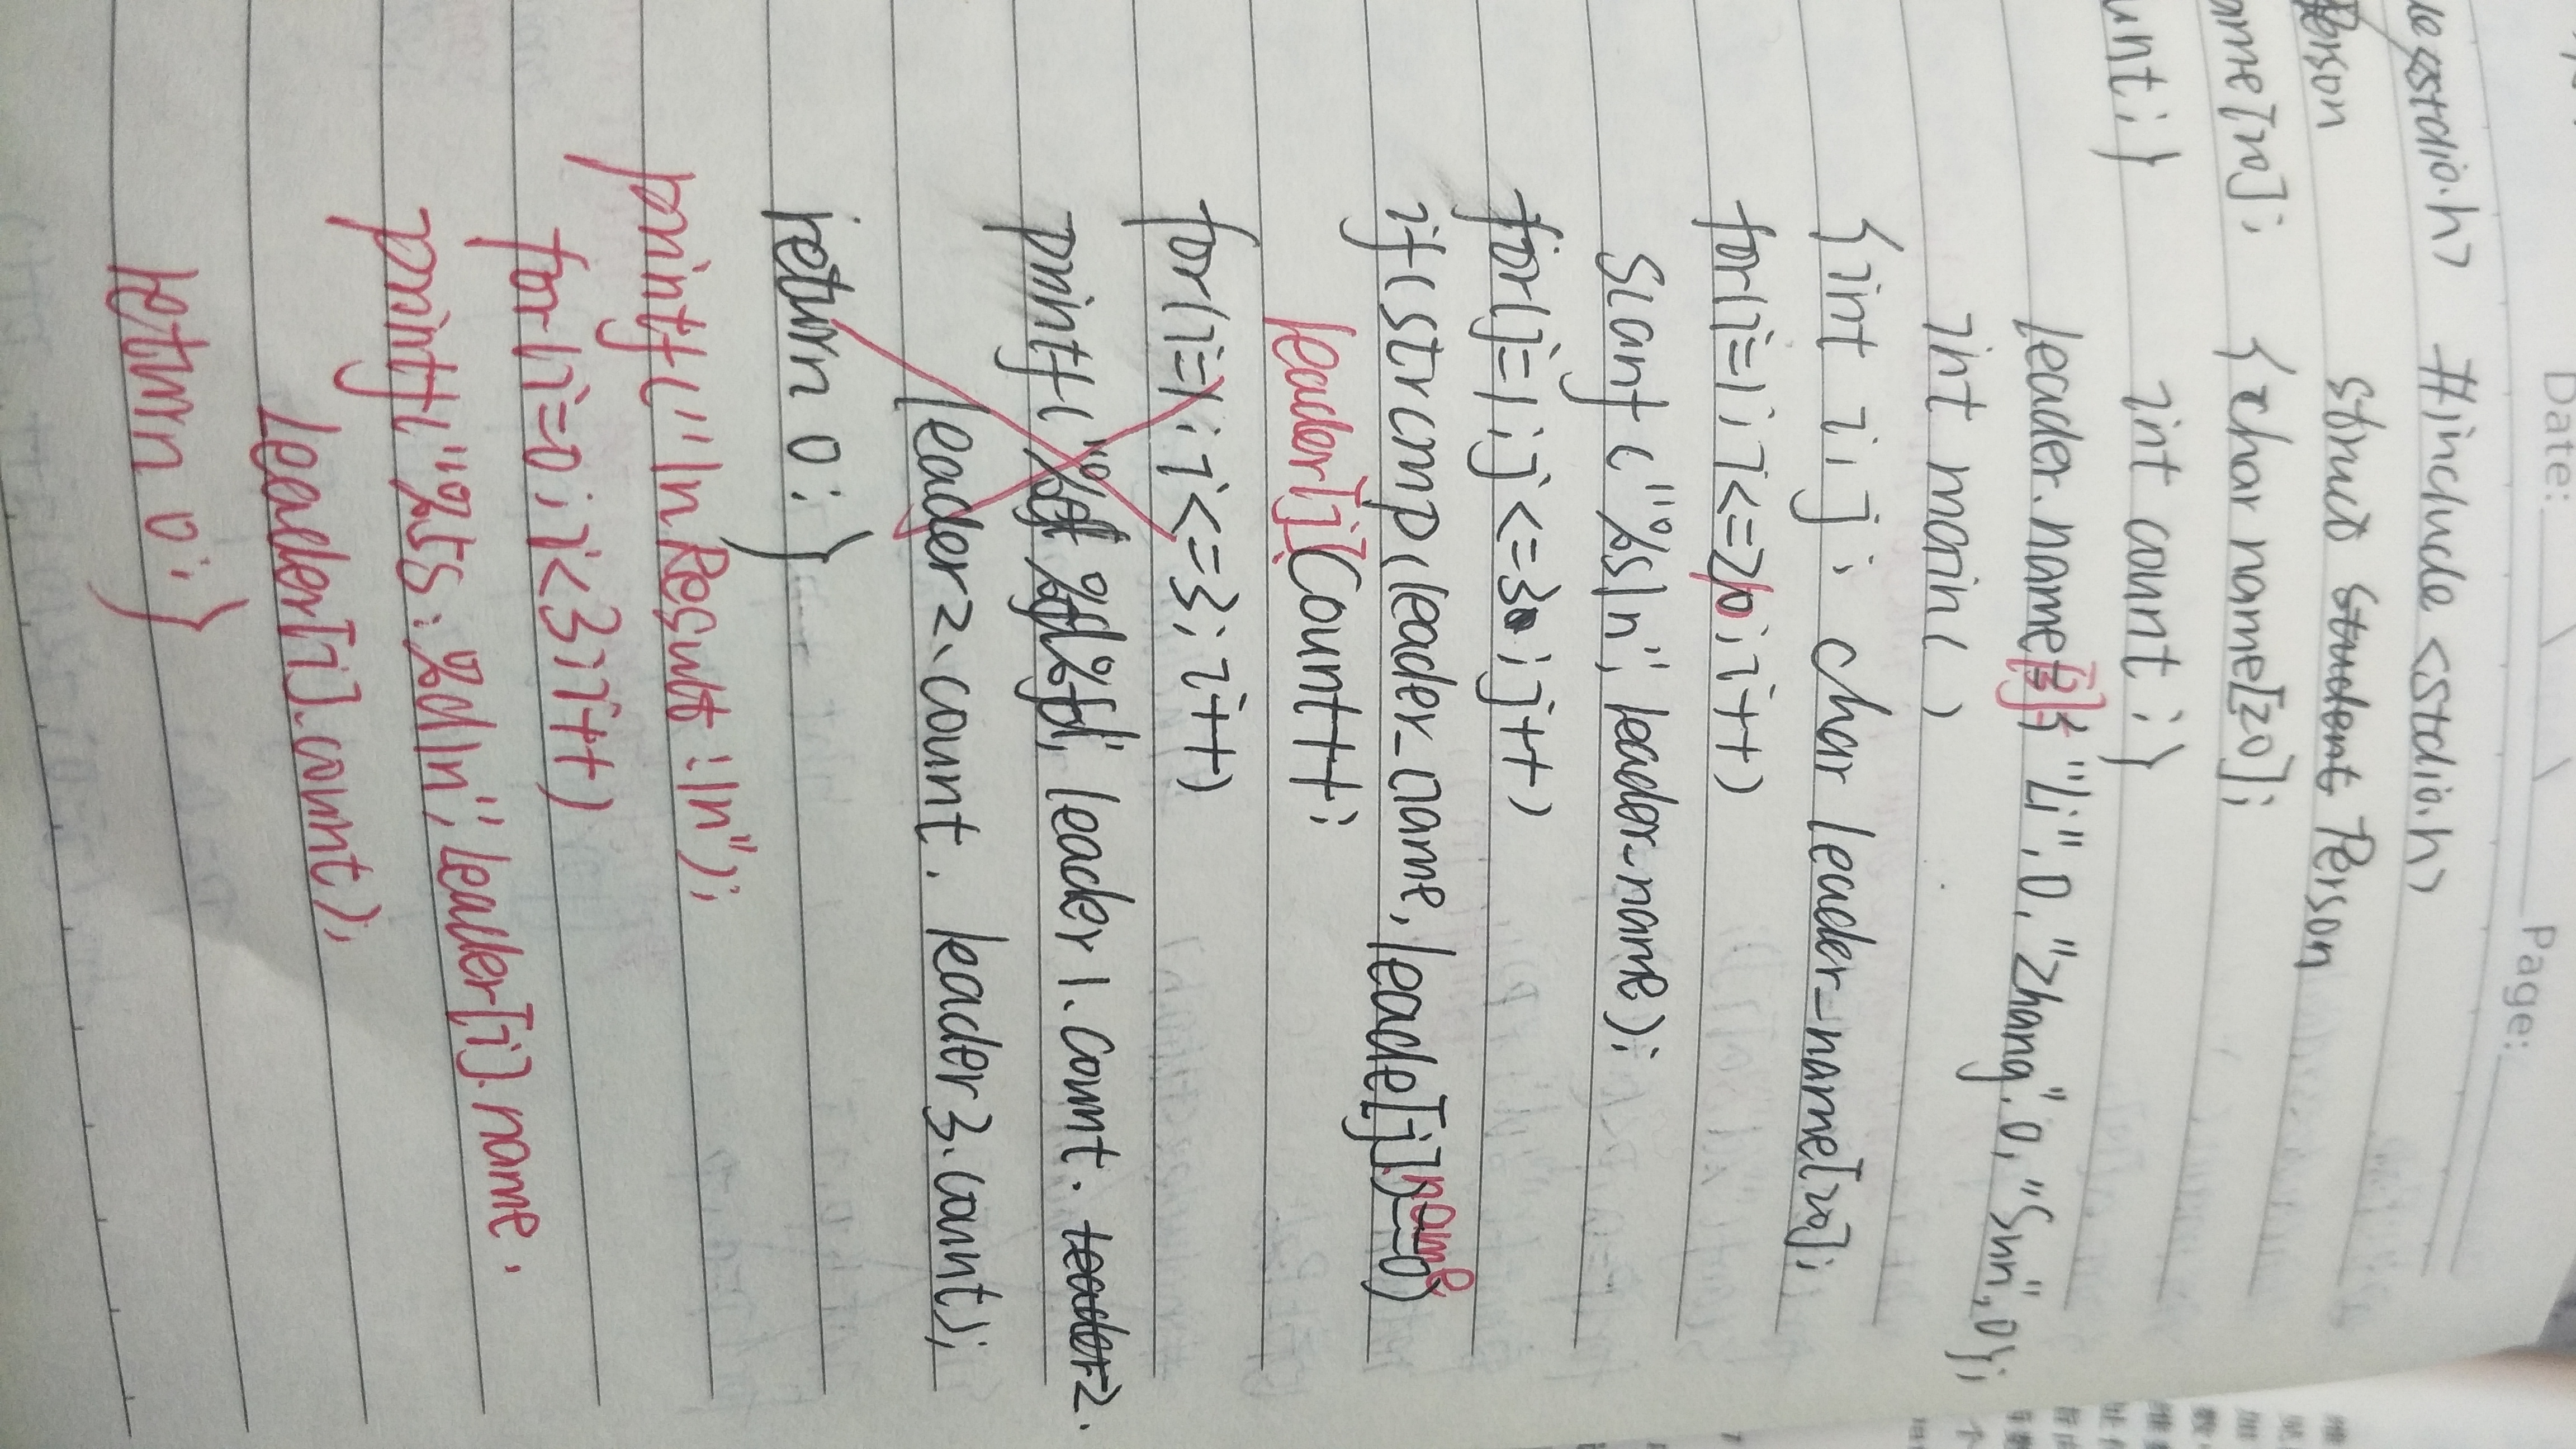 Date: \ \ Page:
<stdio.h> #include <stdio.h>
Person struct Student Person
ame[20]; {char name[20];
unt;} int count;}
leader.name[3]={"Li",0,"Zhang",0,"Sun",0};
int main()
{int i,j; char leader_name[20];
for(i=1;i<=20;i++)
scanf("%s\n",leader_name);
for(j=1;j<=3;j++)
if(strcmp(leader_name,leade[j].name)==0)
leader[j].Count++;
for(i=1;i<=3;i++)
printf("%d %d%d",leader1.count. leader2.
leader2.count. leader3.count);
return 0;}
printf("\nResult:\n");
for(i=0;i<3;i++)
printf("%5s:%d\n",leader[i].name.
Leader[i].count);
return 0;}